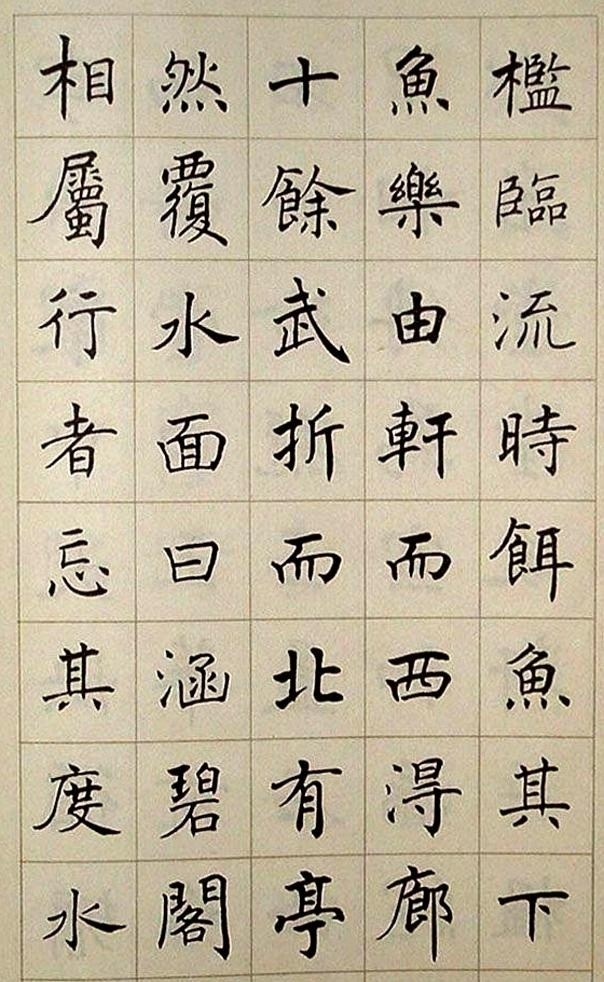 檻臨流時餌魚其下
魚樂由軒而西淂廊
十餘武折而北有亭
然覆水面曰涵碧閣
相屬行者忘其度水